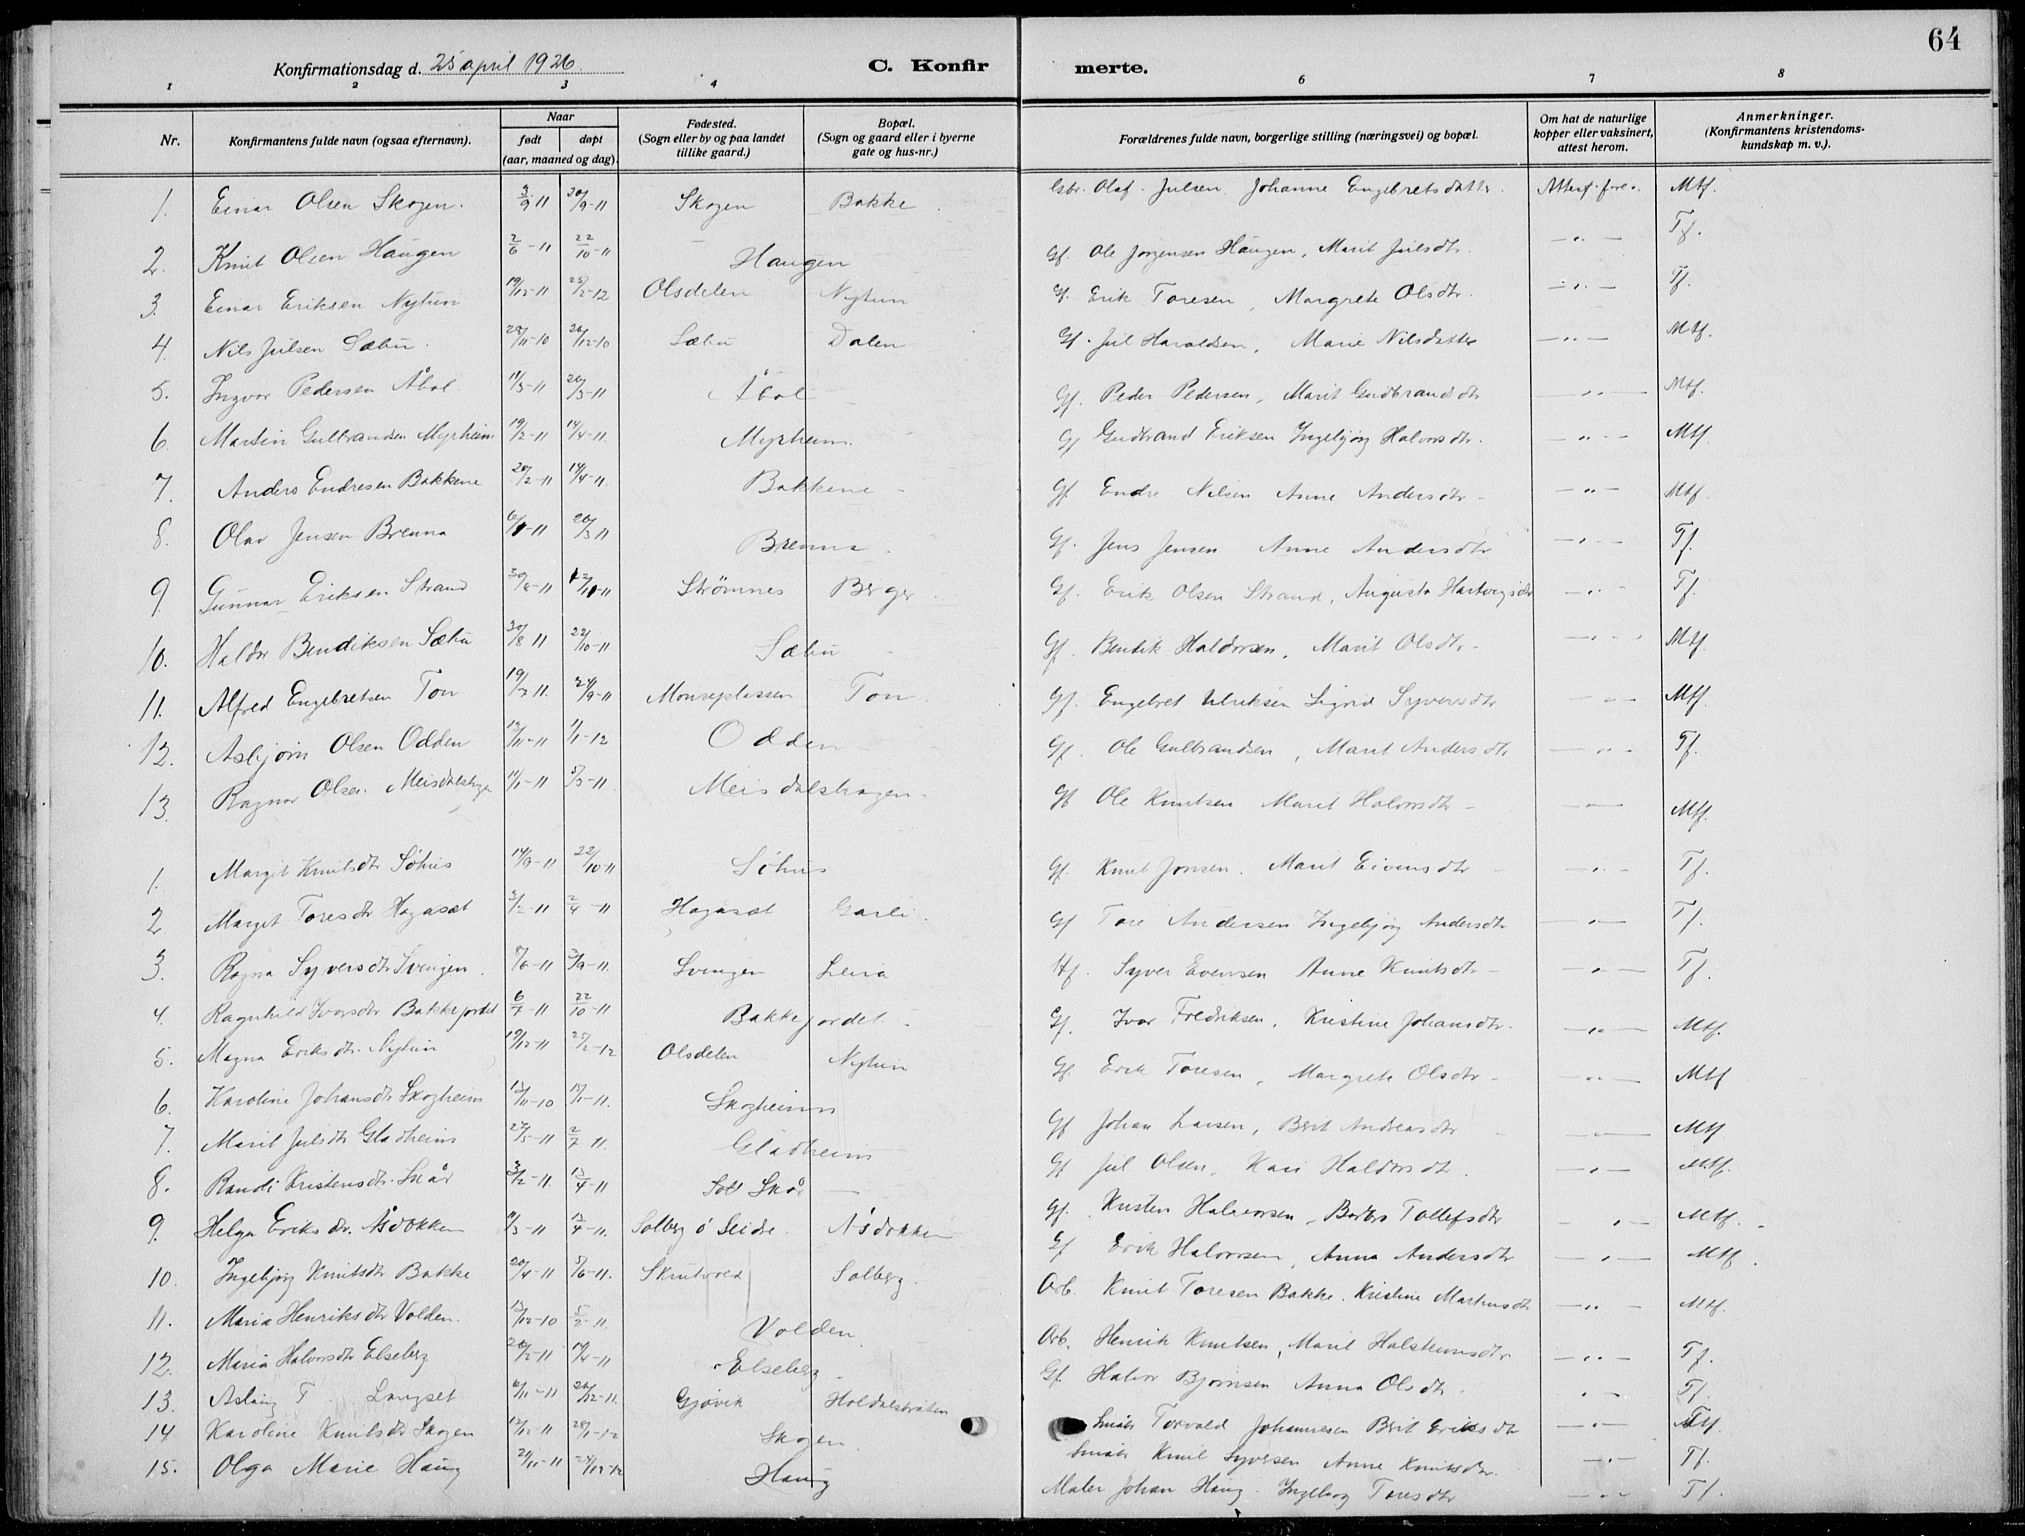 64
Konfirmationsdag d. 25 april 1926. C. Konfirmerte.
1 2 3 4 6 7 8
Nr. Konfirmantens fulde navn (ogsaa efternavn). Naar født døpt (aar, maaned og dag). Fødested. (Sogn eller by og paa landet tillike gaard.) Bopæl. (Sogn og gaard eller i byerne gate og hus-nr.) Forældrenes fulde navn, borgerlige stilling (næringsvei) og bopæl. Om hat de naturlige kopper eller vaksinert, attest herom. Anmerkninger. (Konfirmantens kristendomskundskap m. v.).
1. Einar Olsen Skogen. 3/9 11 20/9-11 Skogen Bakke Gbr. Olaf Julsen, Johanne Engebretsdatter. Attest fore. Mtf.
2. Knut Olsen Haugen 2/6-11 22/10-11 Haugen Gf. Ole Jørgensen Haugen, Marit Julsdtr. -"- Tf.
3. Einar Eriksen Nytun 19/12-11 25/2-12 Olsdelen Nytun Gf. Erik Toresen, Margrete Olsdtr. -"- Tf.
4. Nils Julsen Sæbu. 29/11-10 26/12-10 Sæbu Dalen Gf. Jul Haraldsen, Marie Nilsdatter -"- Mtf.
5. Ingvar Pedersen Åbol. 11/3-11 20/3-11 Åbol Gf. Peder Pedersen, Marit Gudbrandsdtr -"- Mtf.
6. Martin Gulbrandsen Myrheim 19/2-11 14/4-11. Myrheim. Gf Gudbrand Eriksen Ingebjørg Halvorsdtr. -"- Mtf.
7. Anders Endresen Bakkene 20/2-11 14/4-11. Bakkene Gf Endre Nilsen Anne Andersdtr -"- Mtf.
8. Olav Jensen Brenna 6/1-11 20/3 11 Brenna Gf. Jens Jensen Anne Andersdtr -"- Tf.
9 Gunnar Eriksen Strand 30/8-11 /10-11 Strømnes Berger Gf. Erik Olsen Strand, Augusta Hartvigsdtr -"- Tf.
10. Haldor Bendiksen Sæbu 30/8 11 22/10-11 Sæbu Gf. Bendik Haldorsen, Marit Olsdtr -"- Mtf.
11. Alfred Engebretsen Ton 19/7 11. 24/9-11 Monseplassen Ton Gf. Engebret Ulriksen Sigrid Syversdtr -"- Mtf.
12. Asbjørn Olsen Odden 12/11-11 1/1-12 Odden Gf. Ole Gulbrandsen, Marit Andersdtr -"- Tf.
13. Ragnar Olsen Meisdalshagen 11/1-11 5/3-11 Meisdalshagen Gf Ole Knutsen Marit Halvorsdtr -"- Mtf.
1. Margit Knutsdtr Søhus 14/9-11 22/10-11 Søhus Gf. Knut Jonsen. Marit Eivinsdtr -"- Tf.
2 Margit Toresdtr Hagaset 3/2-11 2/4-11 Hagaset Garli. Gf Tore Andersen Ingebjørg Andersdtr -"- Tf.
3. Ragna Syversdtr Svingen. 8/6-11 3/9-11. Svingen Leira Hf. Syver Evensen Anne Knutsdtr -"- Tf.
4. Ragnhild Ivarsdtr Bakkejordet 6/7-11 22/10-11 Bakkejordet Gf. Ivar Fredriksen, Kristine Johansdtr. -"- Mtf.
5. Magna Eriksdtr. Nytun 19/12-11 25/2-12 Olsdelen Nytun Gf. Erik Toresen, Margrete Olsdtr -"- Mtf
6. Karoline Johansdtr Skogheim 13/11-10 15/1-11. Skogheim Gf Johan Larsen, Berit Andreasdtr -"- Mtf
7. Marit Julsdtr Gladheim 24/5-11 2/7 11. Gladheim Gf Jul Olsen, Kari Haldorsdtr. -"- Mtf.
8. Randi Kristensdtr. Skår 3/2-11. 13/4-11 Skår Gf. Kristen Halvorsen, Barbro Tollefsdtr -"- Mtf.
9. Helga Eriksdtr. Åsdokken 11/3-11 13/4-11. Solberg ö Slidre Åsdokken Gf Erik Halvorsen, Anna Andersdtr -"- Mtf.
10. Ingebjørg Knutsdtr Bakke 20/4-11 5/6-11. Skrutvold Solberg. Arb. Knut Toresen Bakke. Kristine Martinsdtr -"- Mtf.
11. Maria Henriksdtr Volden. 13/12-10 5/2-11. Volden Arb. Henrik Knutsen, Marit Halstensdtr -"- Tf.
12. Maria Halvorsdtr Elseberg 20/2-11 14/4-11 Elseberg Gf. Halvor Bjørnsen Anna Olsdtr. -"- Tf.
13. Aslaug T. Langset 6/11-11 26/12-11. Gjøvik Holdalsbråten Småbr Torvald Johannesen Berit Eriksdtr -"- Tf.
14 Karoline Knutsdtr Skogen 13/12-11 28/1-12 Skogen Småbr Knut Syversen Anne Knutsdtr. -"- Tf.
15. Olga Marie Haug 21/11-11 Haug Maler Johan Haug. Ingeborg Toresdtr -"- Tf.